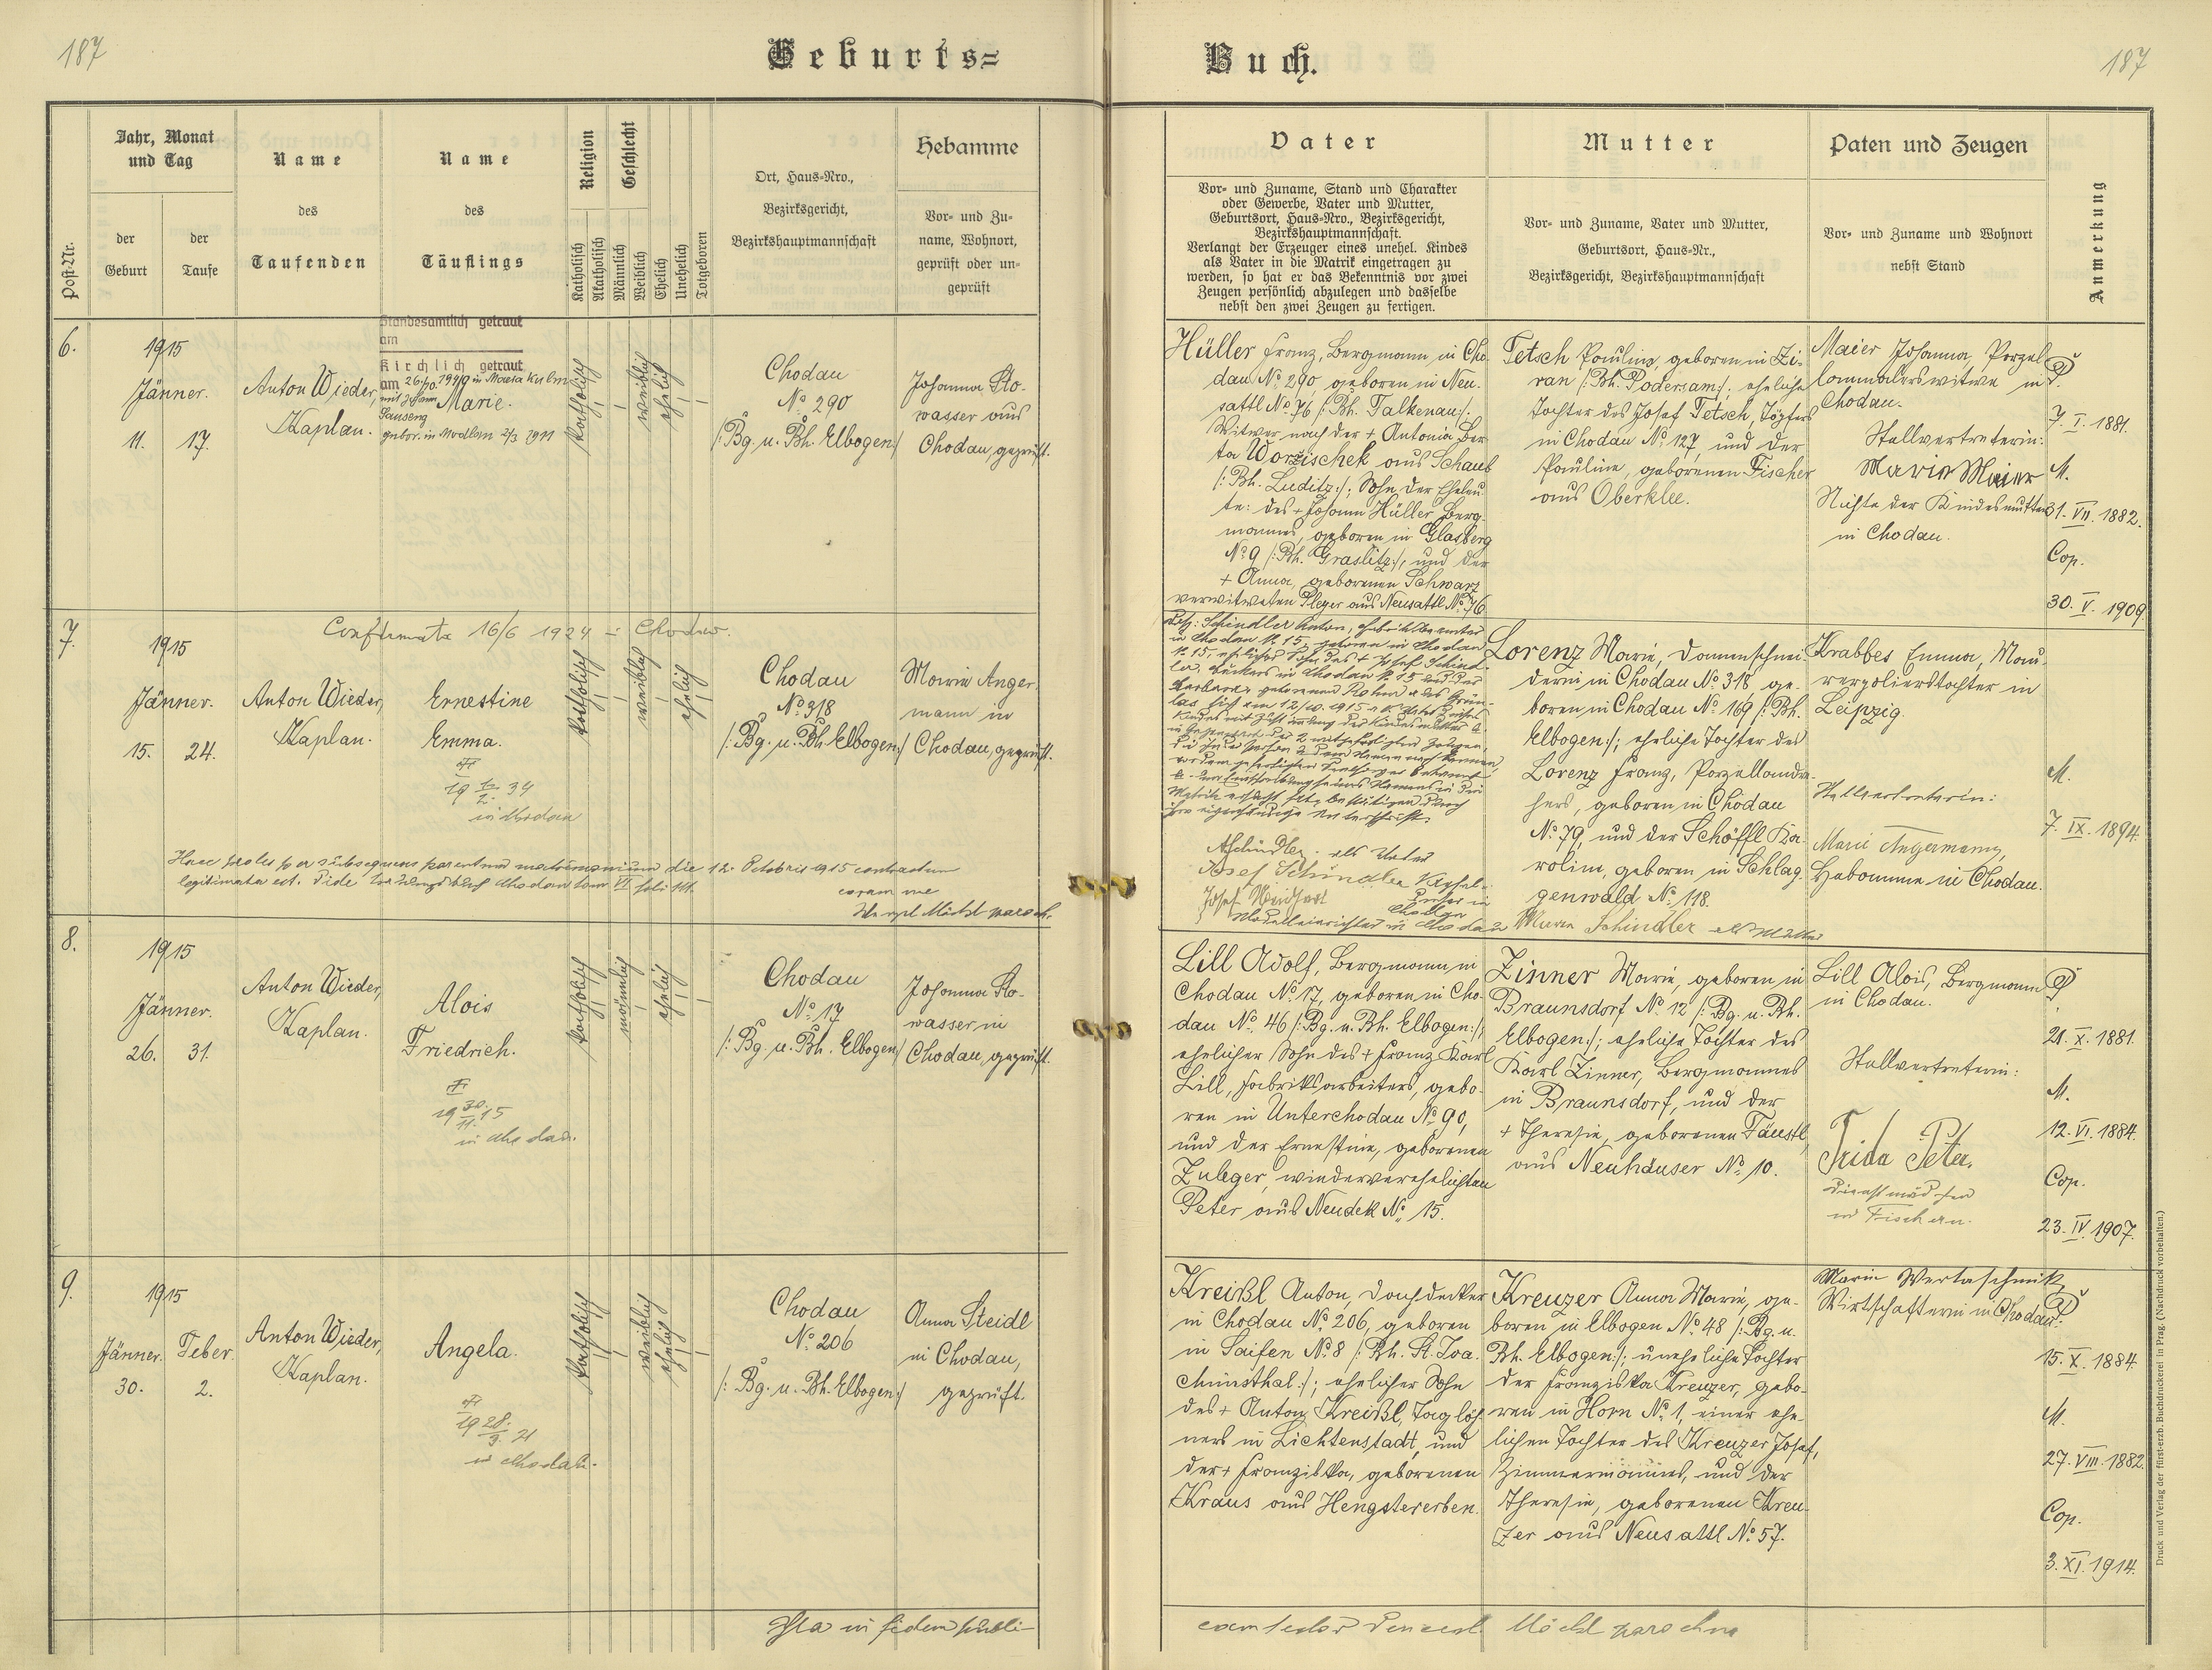 187
Geburts=
Buch.
187
Post-Nr.
Jahr, Monat
und Tag
der
Geburt
der
Taufe
Name
des
Taufenden
Name
des
Täuflings
Religion
Katholisch
Akatholisch
Geschlecht
Männlich
Weiblich
Ehelich
Unehelich
Totgeboren
Ort, Haus-Nro.,
Bezirksgericht,
Bezirkshauptmannschaft
Hebamme
Vor- und Zu-
name, Wohnort,
geprüft oder un-
geprüft
Vater
Vor- und Zuname, Stand und Charakter
oder Gewerbe, Vater und Mutter,
Geburtsort, Haus-Nro., Bezirksgericht,
Bezirkshauptmannschaft.
Verlangt der Erzeuger eines unehel. Kindes
als Vater in die Matrik eingetragen zu
werden, so hat er das Bekenntnis vor zwei
Zeugen persönlich abzulegen und dasselbe
nebst den zwei Zeugen zu fertigen.
Mutter
Vor- und Zuname, Vater und Mutter,
Geburtsort, Haus-Nr.,
Bezirksgericht, Bezirkshauptmannschaft
Paten und Zeugen
Vor- und Zuname und Wohnort
nebst Stand
Anmerkung
6.
1915
Jänner.
11. 17.
Anton Wieder,
Kaplan.
Standesamtlich getraut
am
Kirchlich getraut
am 26/10. 1940 in Maria Kulm
mit Johann
Marie.
Sauseng
gebor. in Modlan 2/3 1911
katholisch
weiblich
ehelich
Chodau
No 290
/: Bg. u. Bh. Elbogen:/
Johanna Ro-
wasser aus
Chodau, geprüft.
Hüller Franz, Bergmann in Cho-
dau No 290, geboren in Neu-
sattl No 76 /: Bh. Falkenau:/.
Witwer nach der + Antonia Ber-
ta Worzischek aus Schaub
/: Bh. Luditz:/; Sohn der Eheleu-
te: des + Johann Hüller, Berg-
mannes, geboren in Glasberg
No 9 /: Bh. Graslitz:/, und der
+ Anna, geborenen Schwarz
verwitweten Pleyer aus Neusattl No 76.
Tetsch Pauline, geboren in Zi-
ran /: Bh. Podersam:/; eheliche
Tochter des Josef Tetsch, Töpfers
in Chodau No 127, und der
Pauline, geborenen Fischer
aus Oberklee.
Maier Johanna, Porzel-
lanmalerswitwe in
Chodau.
Stellvertreterin:
Maria Maier
Nichte der Kindesmutter
in Chodau.
7. I. 1881.
M.
31. VII. 1882.
Cop.
30. V. 1909.
7.
Confirmata 16/6 1924 in Chodau.
1915
Jänner.
15. 24.
Anton Wieder,
Kaplan.
Ernestine
Emma.
in Chodau
katholisch
weiblich
ehelich
Chodau
No 318
/: Bg. u. Bh. Elbogen:/
Maria Anger-
mann in
Chodau, geprüft.
Haec proles per subsequens parentum matrimonium die 12. Octobris 1915 contractum
legitimata est.
coram me
ASchindler als Vater
Josef Schindler
Lorenz Marie, Damenschnei-
derin in Chodau No 318, ge-
boren in Chodau No 169 /: Bh.
Elbogen:/; eheliche Tochter des
Lorenz Franz, Porzellandre-
hers, geboren in Chodau
No 79, und der Schöffl Ka-
rolina, geboren in Schlag-
genwald No 118.
Maria Schindler als Mutter
Krabbes Emma, Mau-
rerpolierstochter in
Leipzig.
Stellvertreterin:
Marie Angermann,
Hebamme in Chodau.
M.
7. IX. 1894.
8.
1915
Jänner.
26. 31.
Anton Wieder,
Kaplan.
Alois
Friedrich.
in Chodau.
katholisch
männlich
ehelich
Chodau
No 17
/: Bg. u. Bh. Elbogen:/
Johanna Ro-
wasser in
Chodau, geprüft.
Lill Adolf, Bergmann in
Chodau No 17, geboren in Cho-
dau No 46 /: Bg. u. Bh. Elbogen:/;
ehelicher Sohn des + Franz Karl
Lill, Fabriksarbeiters, gebo-
ren in Unterchodau No 90,
und der Ernestine, geborenen
Zuleger, wiederverehelichten
Peter aus Neudek No 15.
Zinner Marie, geboren in
Braunsdorf No 12 /: Bg. u. Bh.
Elbogen:/; eheliche Tochter des
Karl Zinner, Bergmannes
in Braunsdorf, und der
+ Theresia, geborenen Fäustl
aus Neuhäuser No 10.
Lill Alois, Bergmann
in Chodau.
Stellvertreterin:
Frida Peter,
Dienstmädchen
in Fischern.
21. X. 1881.
M.
12. VI. 1884.
Cop.
23. IV. 1907.
9.
1915
Jänner. Feber.
30. 2.
Anton Wieder,
Kaplan.
Angela.
in Chodau.
katholisch
weiblich
ehelich
Chodau
No 206
/: Bg. u. Bh. Elbogen:/
Anna Steidl
in Chodau,
geprüft.
Kreißl Anton, Dachdecker
in Chodau No 206, geboren
in Saifen No 8 /: Bh. St. Joa-
chimsthal:/; ehelicher Sohn
des + Anton Kreißl, Taglöh-
ners in Lichtenstadt, und
der + Franziska, geborenen
Kraus aus Hengstererben.
Kreuzer Anna Marie, ge-
boren in Elbogen No 48 /: Bg. u.
Bh. Elbogen:/; uneheliche Tochter
der Franziska Kreuzer, gebo-
ren in Horn No 1, einer ehe-
lichen Tochter des Kreuzer Josef,
Zimmermannes, und der
Theresia, geborenen Kreu-
zer aus Neusattl No 57.
Maria Wertaschnik
Wirtschafterin in Chodau.
15. X. 1884.
M.
27. VIII. 1882.
Cop.
3. XI. 1914.
Ita in fidem publi-
Möckl parochus
Druck und Verlag der fürst-erzb. Buchdruckerei in Prag. (Nachdruck vorbehalten.)